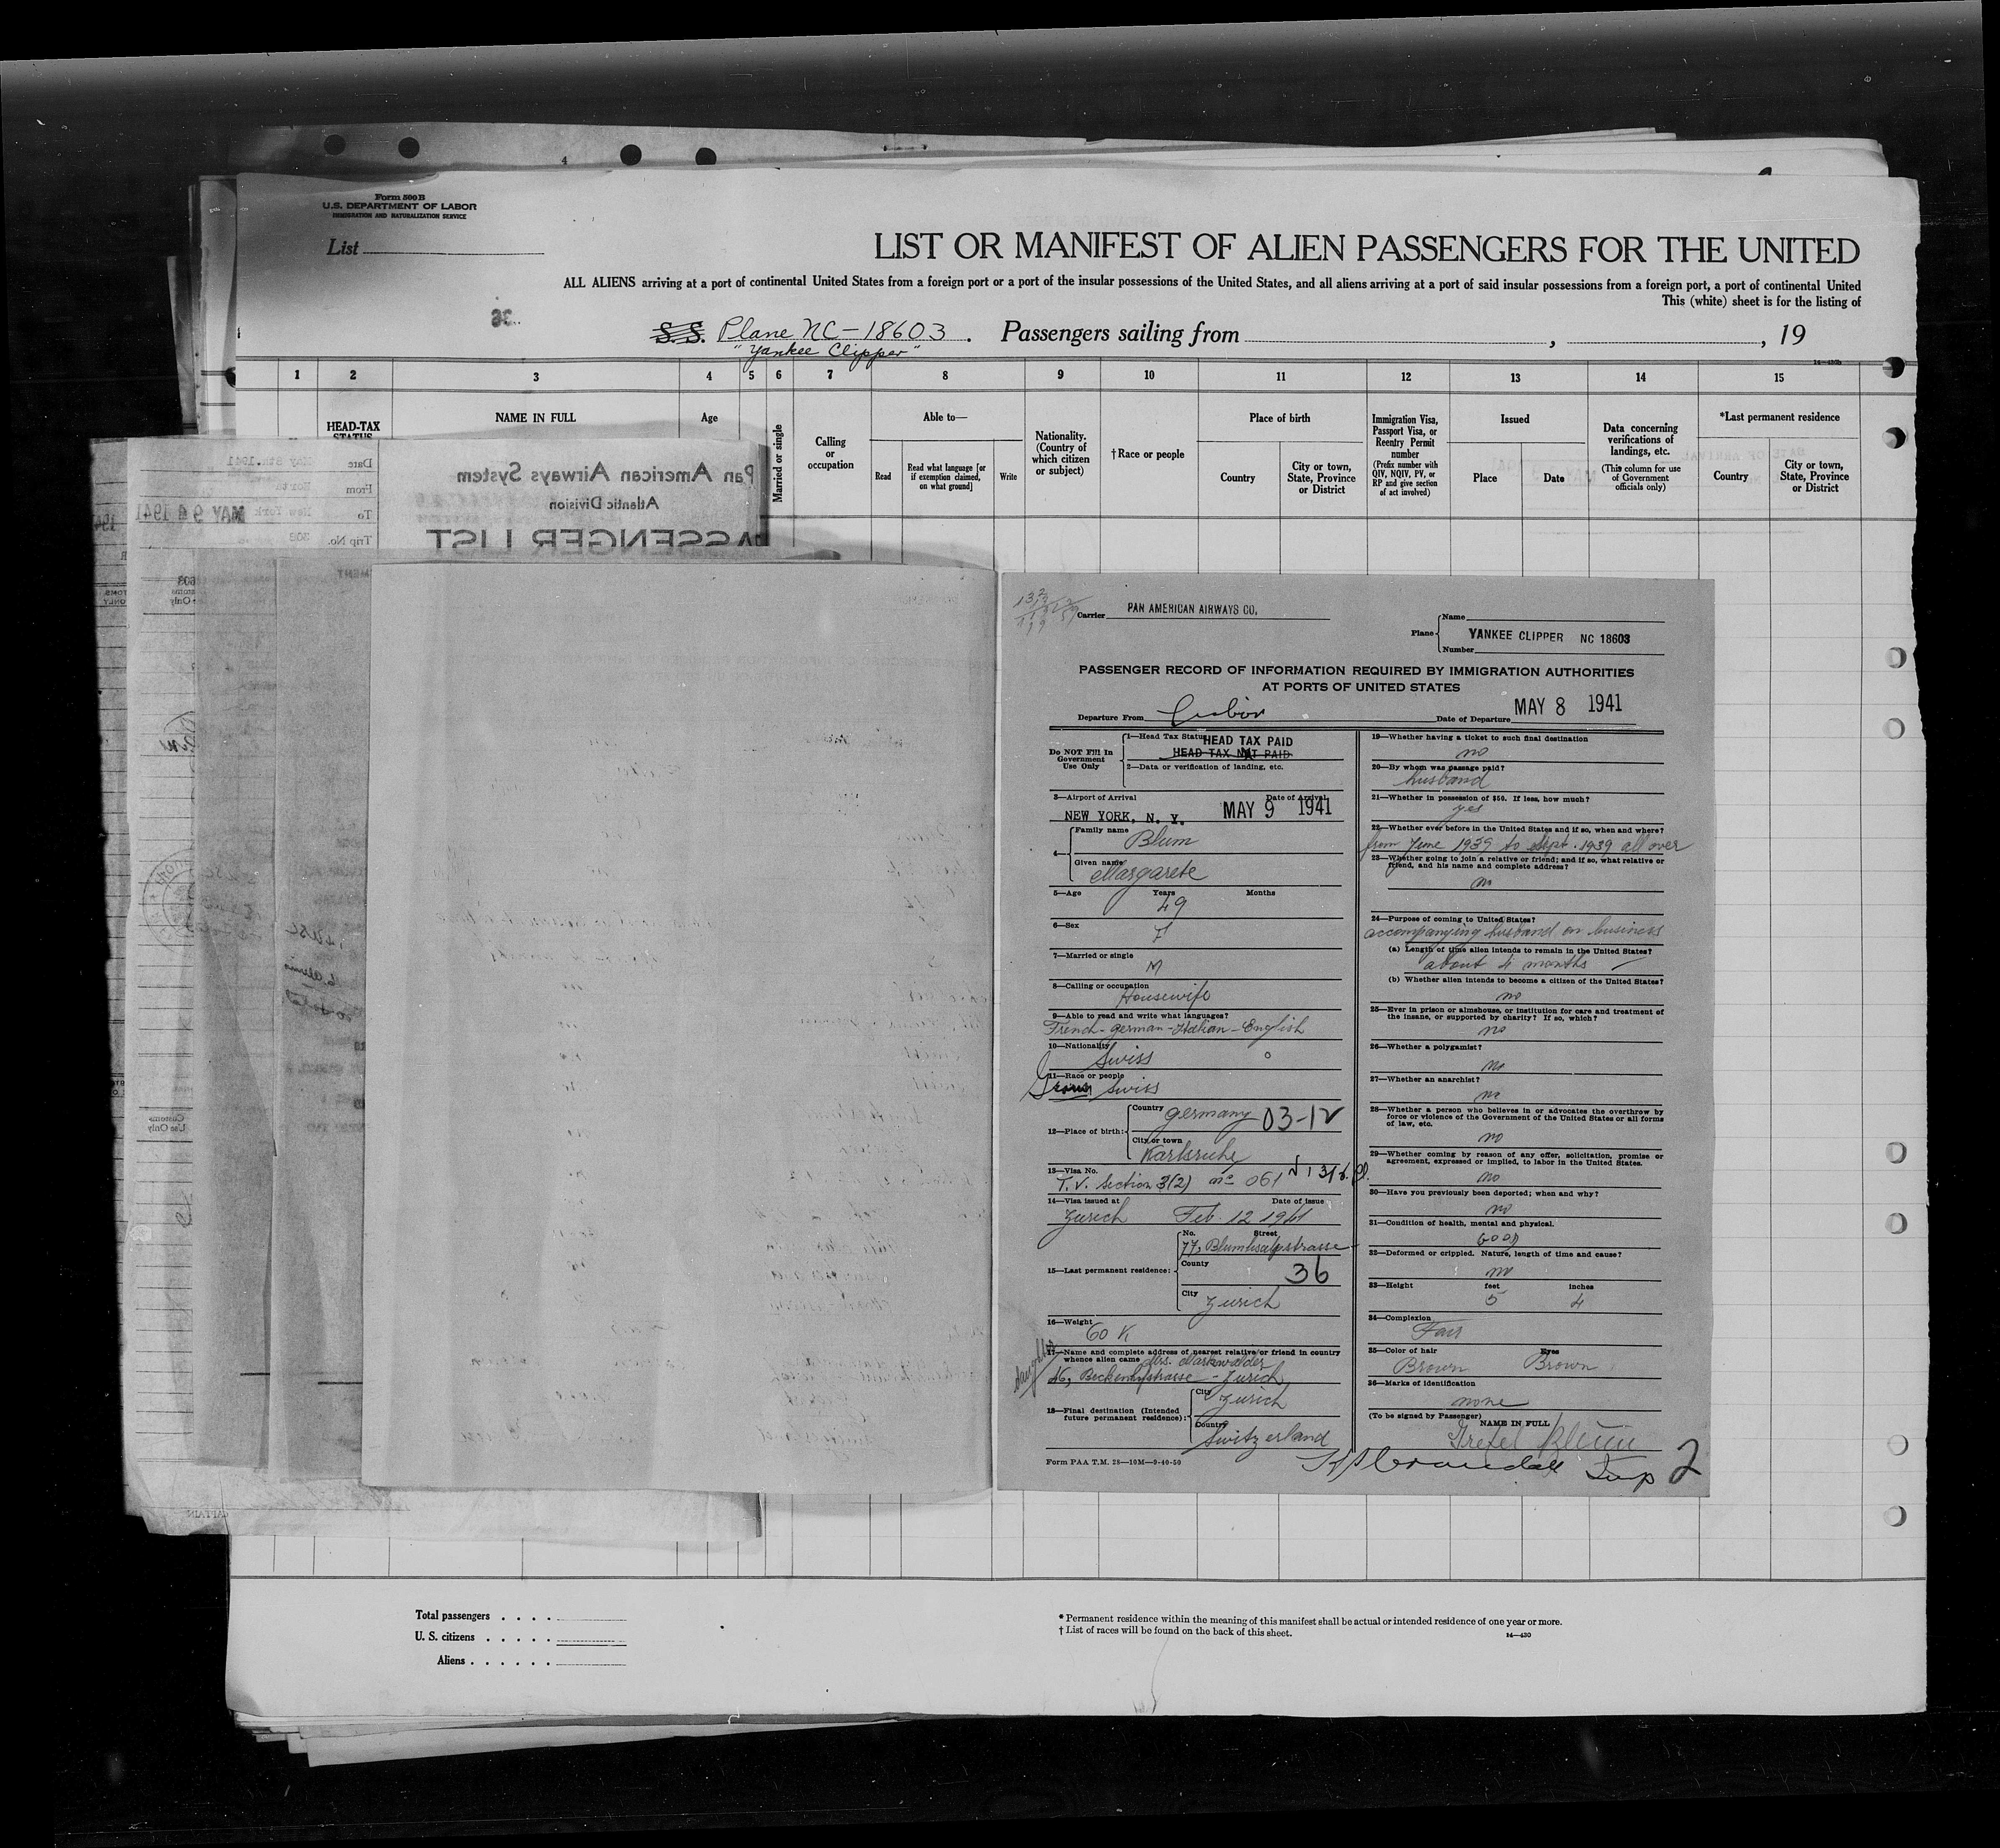 Form 500 B
U.S. DEPARTMENT OF LABOR
IMMIGRATION AND NATURALIZATION SERVICE
List
LIST OR MANIFEST OF ALIEN PASSENGERS FOR THE UNITED
ALL ALIENS arriving at a port of continental United States from a foreign port or a port of the insular possessions of the United States, and all aliens arriving at a port of said insular possessions from a foreign port, a port of continental United
This (white) sheet is for the listing of
S.S. Plane NC-18603. Passengers sailing from , , 19
"Yankee Clipper"
14-430b
1 2 3 4 5 6 7 8 9 10 11 12 13 14 15
HEAD-TAX STATUS
NAME IN FULL
Age
Married or single
Calling or occupation
Able to—
Read
Read what language [or if exemption claimed, on what ground]
Write
Nationality. (Country of which citizen or subject)
†Race or people
Place of birth
Country
City or town, State, Province or District
Immigration Visa, Passport Visa, or Reentry Permit number
(Prefix number with QIV, NQIV, PV, or RP and give section of act involved)
Issued
Place
Date
Data concerning verifications of landings, etc.
(This column for use of Government officials only)
*Last permanent residence
Country
City or town, State, Province or District
Pan American Airways System
Atlantic Division
PASSENGER LIST
Date May 8th, 1941
From Horta
To New York MAY 9 1941
Trip No. 302
Carrier PAN AMERICAN AIRWAYS CO.
Plane Name
YANKEE CLIPPER NC 18603
Number
PASSENGER RECORD OF INFORMATION REQUIRED BY IMMIGRATION AUTHORITIES
AT PORTS OF UNITED STATES
Departure From Lisbon Date of Departure MAY 8 1941
Do NOT Fill In Government Use Only
1—Head Tax Status HEAD TAX PAID
HEAD TAX NOT PAID
2—Data or verification of landing, etc.
3—Airport of Arrival Date of Arrival
NEW YORK, N. Y. MAY 9 1941
4— Family name
Blum
Given name
Margarete
5—Age Years Months
49
6—Sex
F
7—Married or single
M
8—Calling or occupation
Housewife
9—Able to read and write what languages?
French-German-Italian-English
10—Nationality
Swiss
11—Race or people
Swiss
12—Place of birth: Country Germany 03-12
City or town
Karlsruhe
13—Visa No.
T.V. Section 3(2) no 061
14—Visa issued at Date of issue
Zurich Feb. 12 1941
15—Last permanent residence: No. Street
77, strasse
County
36
City Zurich
16—Weight
60 K
17—Name and complete address of nearest relative or friend in country
whence alien came Mrs. Markwalder
46, strasse - Zurich
daughter
18—Final destination (Intended future permanent residence): City Zurich
Country
Switzerland
Form PAA T.M. 28—10M—9-40-50
19—Whether having a ticket to such final destination
no
20—By whom was passage paid?
husband
21—Whether in possession of $50. If less, how much?
yes
22—Whether ever before in the United States and if so, when and where?
from June 1939 to Sept. 1939 all over
23—Whether going to join a relative or friend; and if so, what relative or
friend, and his name and complete address?
no
24—Purpose of coming to United States?
accompanying husband on business
(a) Length of time alien intends to remain in the United States?
about 4 months
(b) Whether alien intends to become a citizen of the United States?
no
25—Ever in prison or almshouse, or institution for care and treatment of
the insane, or supported by charity? If so, which?
no
26—Whether a polygamist?
no
27—Whether an anarchist?
no
28—Whether a person who believes in or advocates the overthrow by
force or violence of the Government of the United States or all forms
of law, etc.
no
29—Whether coming by reason of any offer, solicitation, promise or
agreement, expressed or implied, to labor in the United States.
no
30—Have you previously been deported; when and why?
no
31—Condition of health, mental and physical.
good
32—Deformed or crippled. Nature, length of time and cause?
no
33—Height feet inches
5 4
34—Complexion
Fair
35—Color of hair Eyes
Brown Brown
36—Marks of identification
none
(To be signed by Passenger)
NAME IN FULL
Gretel Blum
Crandall Insp 2
Total passengers
U. S. citizens
Aliens
* Permanent residence within the meaning of this manifest shall be actual or intended residence of one year or more.
† List of races will be found on the back of this sheet.
14—430